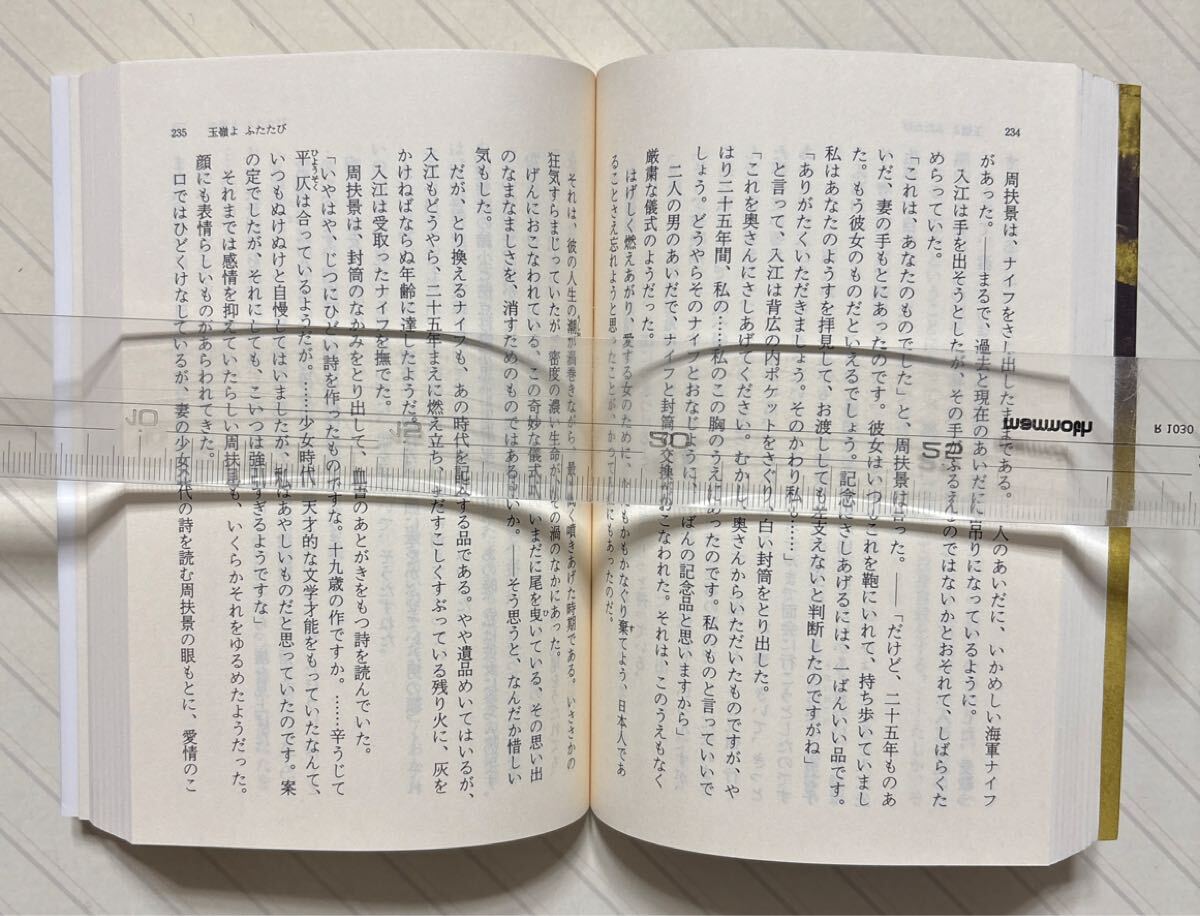 234
周扶景は、ナイフをさし出したままである。人のあいだに、いかめしい海軍ナイフ
があった。――まるで、過去と現在のあいだに吊りになっているように。
入江は手を出そうとしたが、その手がふるえるのではないかとおそれて、しばらくた
めらっていた。
「これは、あなたのものでした」と、周扶景は言った。――「だけど、二十五年ものあ
いだ、妻の手もとにあったのです。彼女はいつもこれを鞄にいれて、持ち歩いていまし
た。もう彼女のものだといえるでしょう。記念にさしあげるには、一ばんいい品です。
私はあなたのようすを拝見して、お渡ししても差支えないと判断したのですがね」
「ありがたくいただきましょう。そのかわり私も……」
と言って、入江は背広の内ポケットをさぐり、白い封筒をとり出した。
「これを奥さんにさしあげてください。むかし、奥さんからいただいたものですが、や
はり二十五年間、私の……私のこの胸のうえにあったのです。私のものと言っていいで
しょう。どうやらそのナイフとおなじように、一ばんの記念品と思いますから」
二人の男のあいだで、ナイフと封筒の交換がおこなわれた。それは、このうえもなく
厳粛な儀式のようだった。
はげしく燃えあがり、愛する女のために、
もかもかなぐり棄てよう、日本人であ
ることさえ忘れようと思ったことが、かつて
にもあったのだ。
235 玉嶺よ ふたたび
それは、彼の人生の潮が渦巻きながら、最も
く噴きあげた時期である。いささかの
狂気すらまじっていたが、密度の濃い生命が、その渦のなかにあった。
げんにおこなわれている、この奇妙な儀式は、いまだに尾を曳いている、その思い出
のなまなましさを、消すためのものではあるまいか。――そう思うと、なんだか惜しい
気もした。
だが、とり換えるナイフも、あの時代を記念する品である。やや遺品めいてはいるが、
入江もどうやら、二十五年まえに燃え立ち、まだすこしくすぶっている残り火に、灰を
かけねばならぬ年齢に達したようだ。
入江は受取ったナイフを撫でた。
周扶景は、封筒のなかみをとり出して、血書のあとがきをもつ詩を読んでいた。
「いやはや、じつにひどい詩を作ったものですな。十九歳の作ですか。……辛うじて
平仄は合っているようだが。……少女時代、天才的な文学才能をもっていたなんて、
いつもぬけぬけと自慢してはいましたが、私はあやしいものだと思っていたのです。案
の定でしたが、それにしても、こいつは強すぎるようですな」
それまでは感情を抑えていたらしい周扶景も、いくらかそれをゆるめたようだった。
顔にも表情らしいものがあらわれてきた。
口ではひどくけなしているが、妻の少女時代の詩を読む周扶景の眼もとに、愛情のこ
mammoth
R 1030